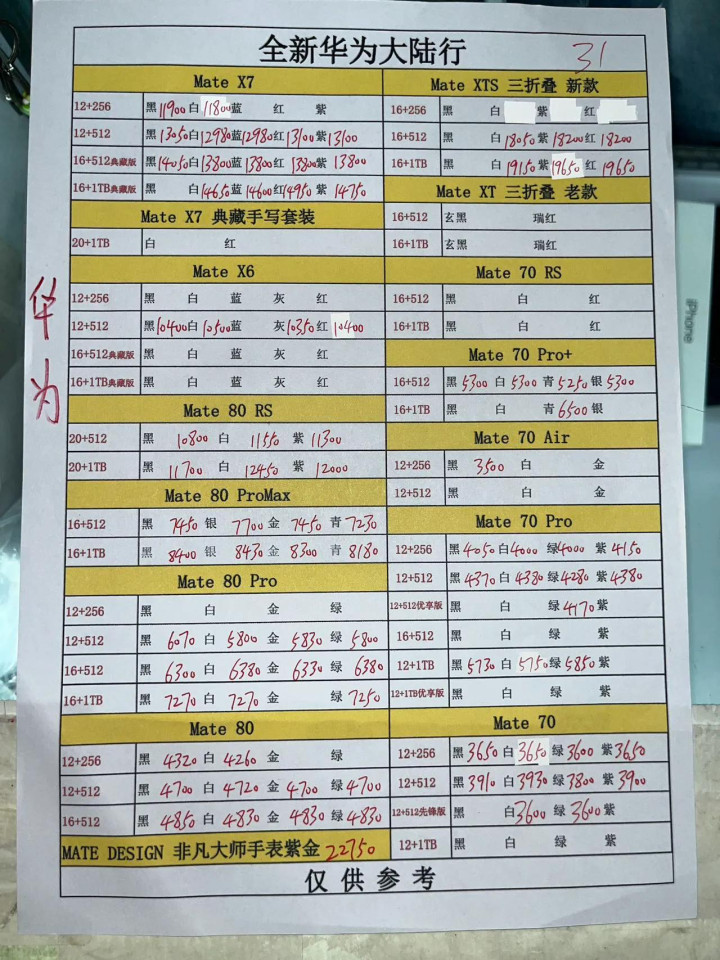 全新华为大陆行 31
Mate X7
12+256 黑 11900 白 11800 蓝 红 紫
12+512 黑 13050 白 12980 蓝 12980 红 13100 紫 13100
16+512典藏版 黑 14050 白 13800 蓝 13800 红 13800 紫 13800
16+1TB典藏版 黑 白 14650 蓝 14600 红 14950 紫 14750
Mate X7 典藏手写套装
20+1TB 白 红
Mate X6
12+256 黑 白 蓝 灰 红
12+512 黑 10400 白 10500 蓝 灰 10350 红 10400
16+512典藏版 黑 白 蓝 灰 红
16+1TB典藏版 黑 白 蓝 灰 红
Mate 80 RS
20+512 黑 10800 白 11550 紫 11300
20+1TB 黑 11700 白 12450 紫 12000
Mate 80 ProMax
16+512 黑 7450 银 7700 金 7450 青 7230
16+1TB 黑 8400 银 8430 金 8300 青 8180
Mate 80 Pro
12+256 黑 白 金 绿
12+512 黑 6070 白 5800 金 5830 绿 5800
16+512 黑 6300 白 6380 金 6330 绿 6380
16+1TB 黑 7270 白 7270 金 绿 7250
Mate 80
12+256 黑 4320 白 4260 金 绿
12+512 黑 4700 白 4720 金 4700 绿 4700
16+512 黑 4850 白 4830 金 4830 绿 4830
MATE DESIGN 非凡大师手表紫金 22750
Mate XTS 三折叠 新款
16+256 黑 白 紫 红
16+512 黑 白 18050 紫 18200 红 18200
16+1TB 黑 白 19150 紫 19650 红 19650
Mate XT 三折叠 老款
16+512 玄黑 瑞红
16+1TB 玄黑 瑞红
Mate 70 RS
16+512 黑 白 红
16+1TB 黑 白 红
Mate 70 Pro+
16+512 黑 5300 白 5300 青 5250 银 5300
16+1TB 黑 白 青 6500 银
Mate 70 Air
12+256 黑 3500 白 金
12+512 黑 白 金
Mate 70 Pro
12+256 黑 4050 白 4000 绿 4000 紫 4150
12+512 黑 4370 白 4380 绿 4280 紫 4380
12+512优享版 黑 白 绿 4170 紫
16+512 黑 白 绿 紫
12+1TB 黑 5730 白 5750 绿 5850 紫
12+1TB优享版 黑 白 绿 紫
Mate 70
12+256 黑 3650 白 3650 绿 3600 紫 3650
12+512 黑 3910 白 3930 绿 3800 紫 3900
12+512先锋版 黑 白 3600 绿 3600 紫
12+1TB 黑 白 绿 紫
仅供参考
华为
iPhone